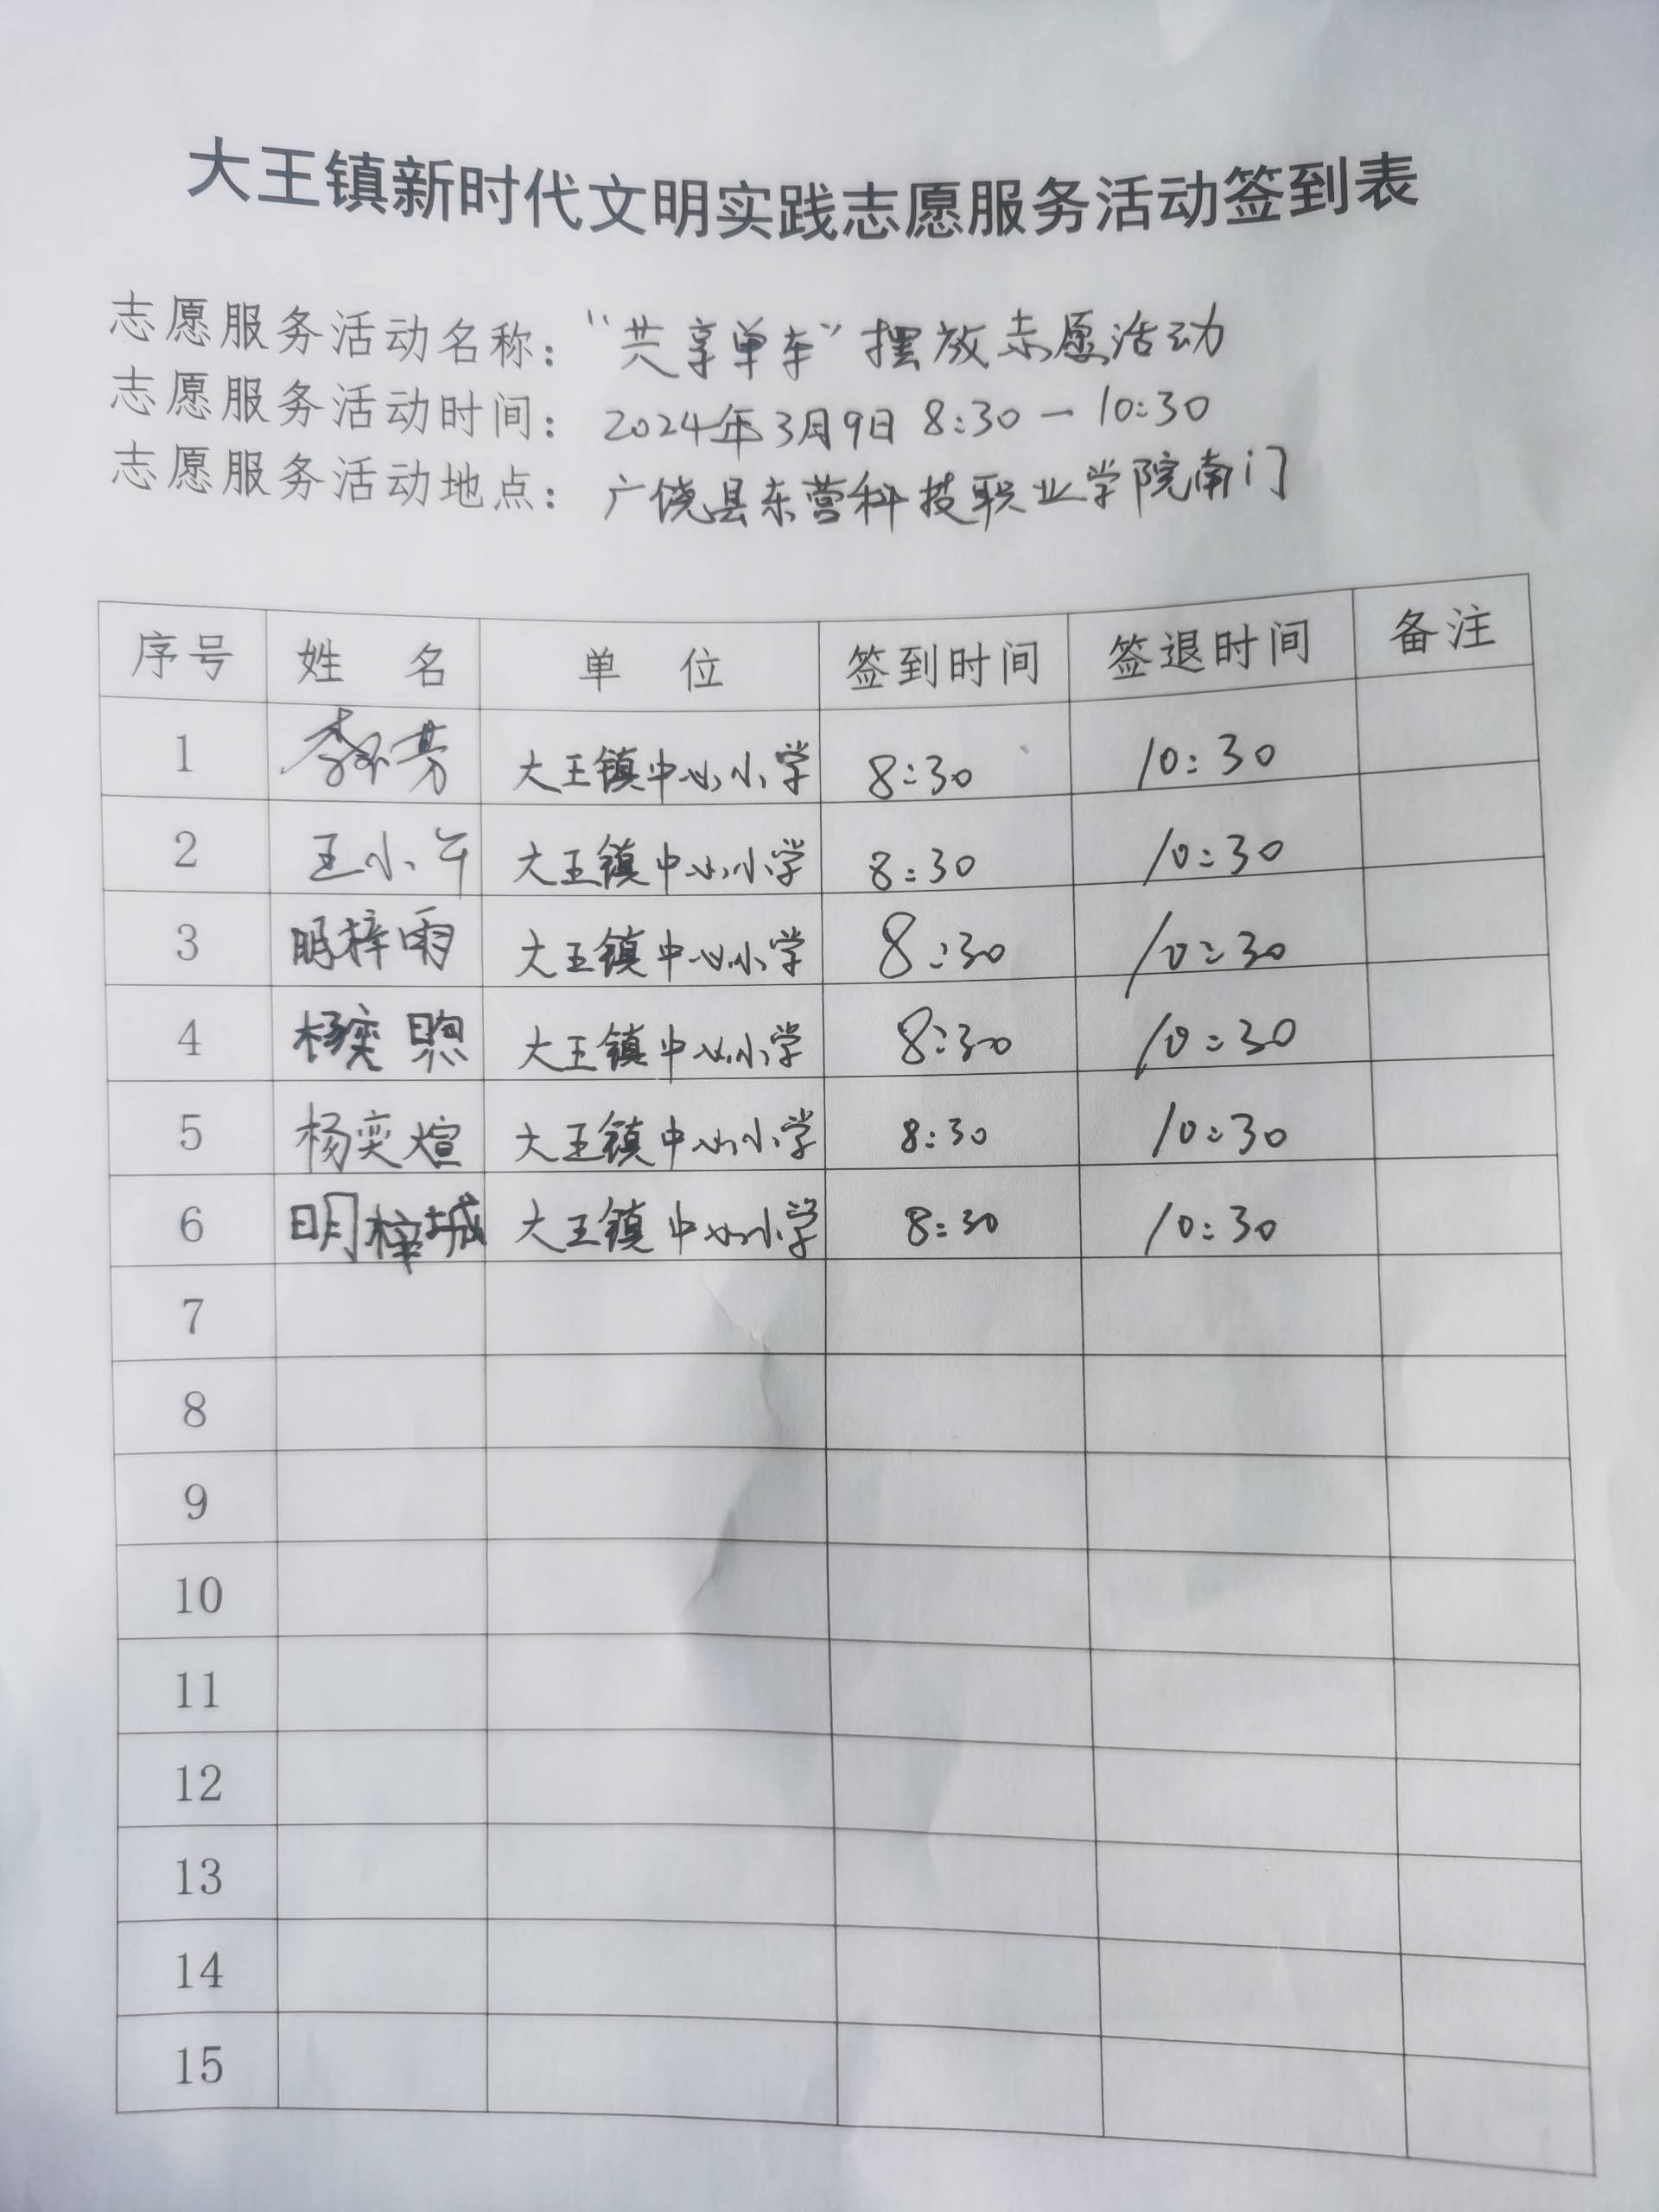 大王镇新时代文明实践志愿服务活动签到表
志愿服务活动名称：“共享单车”摆放志愿活动
志愿服务活动时间：2024年3月9日 8:30—10:30
志愿服务活动地点：广饶县东营科技职业学院南门
序号 姓 名 单 位 签到时间 签退时间 备注
1 大王镇中心小学 8:30 10:30
2 王小午 大王镇中心小学 8:30 10:30
3 明梓雨 大王镇中心小学 8:30 10:30
4 杨奕 大王镇中心小学 8:30 10:30
5 杨奕煊 大王镇中心小学 8:30 10:30
6 明梓城 大王镇中心小学 8:30 10:30
7
8
9
10
11
12
13
14
15